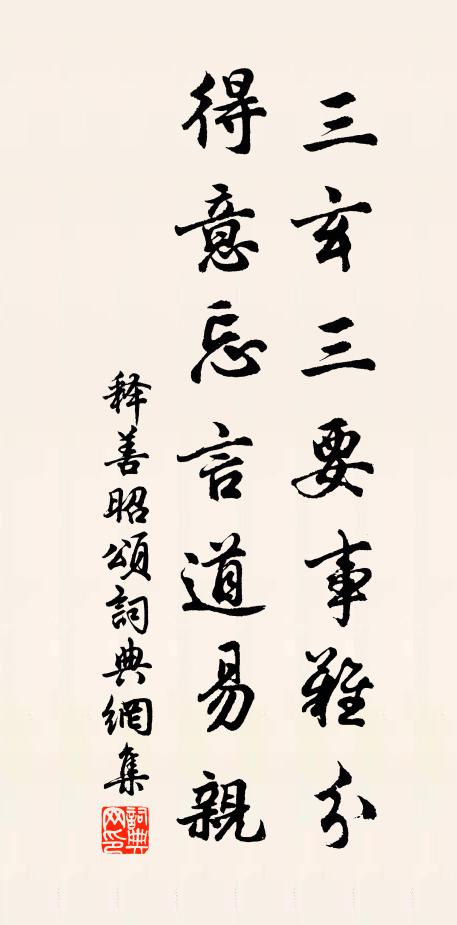 三玄三要事難分
得意忘言道易親
释善昭頌詞典網集
詞典网印